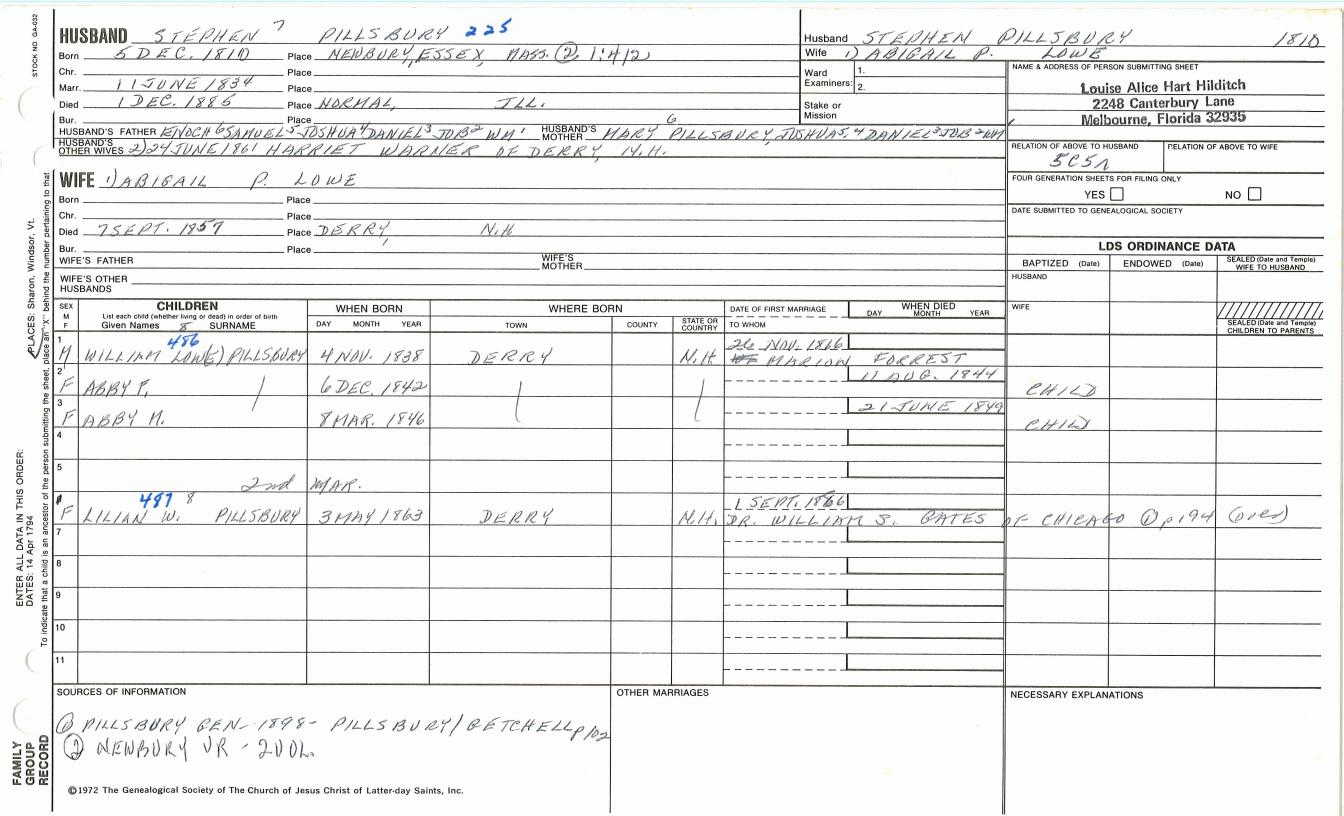 STOCK NO. GA-032
HUSBAND STEPHEN 7 PILLSBURY 225
Born 5 DEC. 1810 Place NEWBURY, ESSEX, MASS. ② 1:412
Chr. Place
Marr. 11 JUNE 1834 Place
Died 1 DEC. 1886 Place NORMAL, ILL.
Bur. Place
HUSBAND'S FATHER ENOCH 6 SAMUEL 5 JOSHUA 4 DANIEL 3 JOB 2 WM 1 HUSBAND'S MOTHER MARY 6 PILLSBURY, JOSHUA 5, 4 DANIEL 3 JOB 2 WM
HUSBAND'S OTHER WIVES 2) 24 JUNE 1861 HARRIET WARNER OF DERRY, N.H.
Husband STEPHEN PILLSBURY 1810
Wife 1) ABIGAIL P. LOWE
Ward Examiners: 1.
2.
Stake or Mission
NAME & ADDRESS OF PERSON SUBMITTING SHEET
Louise Alice Hart Hilditch
2248 Canterbury Lane
Melbourne, Florida 32935
RELATION OF ABOVE TO HUSBAND RELATION OF ABOVE TO WIFE
5C5R
FOUR GENERATION SHEETS FOR FILING ONLY
YES NO
DATE SUBMITTED TO GENEALOGICAL SOCIETY
WIFE 1) ABIGAIL P. LOWE
Born Place
Chr. Place
Died 7 SEPT. 1857 Place DERRY, N.H
Bur. Place
WIFE'S FATHER WIFE'S MOTHER
WIFE'S OTHER HUSBANDS
LDS ORDINANCE DATA
BAPTIZED (Date) ENDOWED (Date) SEALED (Date and Temple) WIFE TO HUSBAND
HUSBAND
WIFE
SEALED (Date and Temple) CHILDREN TO PARENTS
SEX M F CHILDREN WHEN BORN WHERE BORN DATE OF FIRST MARRIAGE WHEN DIED
List each child (whether living or dead) in order of birth
Given Names 8 SURNAME DAY MONTH YEAR TOWN COUNTY STATE OR COUNTRY TO WHOM DAY MONTH YEAR
1 486 26 NOV. 1866
M WILLIAM LOW(E) PILLSBURY 4 NOV. 1838 DERRY N.H MARION FORREST
2 11 AUG. 1844
F ABBY P. 6 DEC. 1842 CHILD
3 21 JUNE 1849
F ABBY M. 8 MAR. 1846 CHILD
4
5
2nd MAR.
487 8 1 SEPT. 1866
F LILIAN W. PILLSBURY 3 MAY 1863 DERRY N.H. DR. WILLIAM S. GATES OF CHICAGO ① p194 (over)
7
8
9
10
11
SOURCES OF INFORMATION OTHER MARRIAGES NECESSARY EXPLANATIONS
① PILLSBURY GEN- 1898- PILLSBURY/GETCHELL p102
② NEWBURY VR - 2VOL.
©1972 The Genealogical Society of The Church of Jesus Christ of Latter-day Saints, Inc.
PLACES: Sharon, Windsor, Vt.
ENTER ALL DATA IN THIS ORDER:
DATES: 14 Apr 1794
To indicate that a child is an ancestor of the person submitting the sheet, place an "X" behind the number pertaining to that
FAMILY
GROUP
RECORD